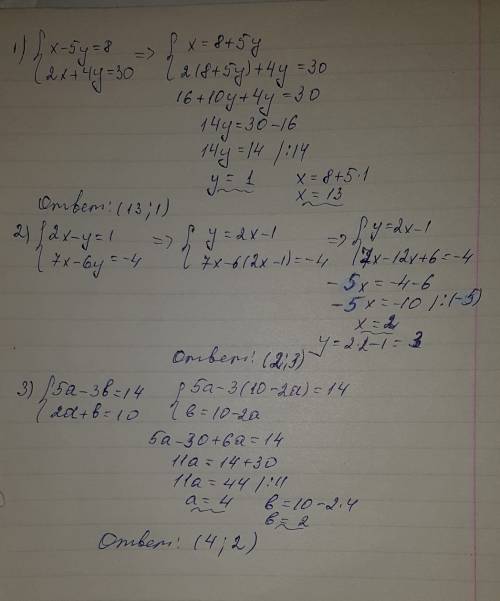 1) { x-5y=8 => { x=8+5y
2x+4y=30 2(8+5y)+4y=30
16+10y+4y=30
14y=30-16
14y=14 /:14
y=1 x=8+5·1
x=13
Ответ: (13;1)
2) { 2x-y=1 => { y=2x-1 => { y=2x-1
7x-6y=-4 7x-6(2x-1)=-4 7x-12x+6=-4
-5x=-4-6
-5x=-10 /:(-5)
x=2
y=2·2-1=3
Ответ: (2;3)
3) { 5a-3в=14 { 5a-3(10-2a)=14
2a+в=10 в=10-2a
5a-30+6a=14
11a=14+30
11a=44 /:11
a=4 в=10-2·4
в=2
Ответ: (4;2)